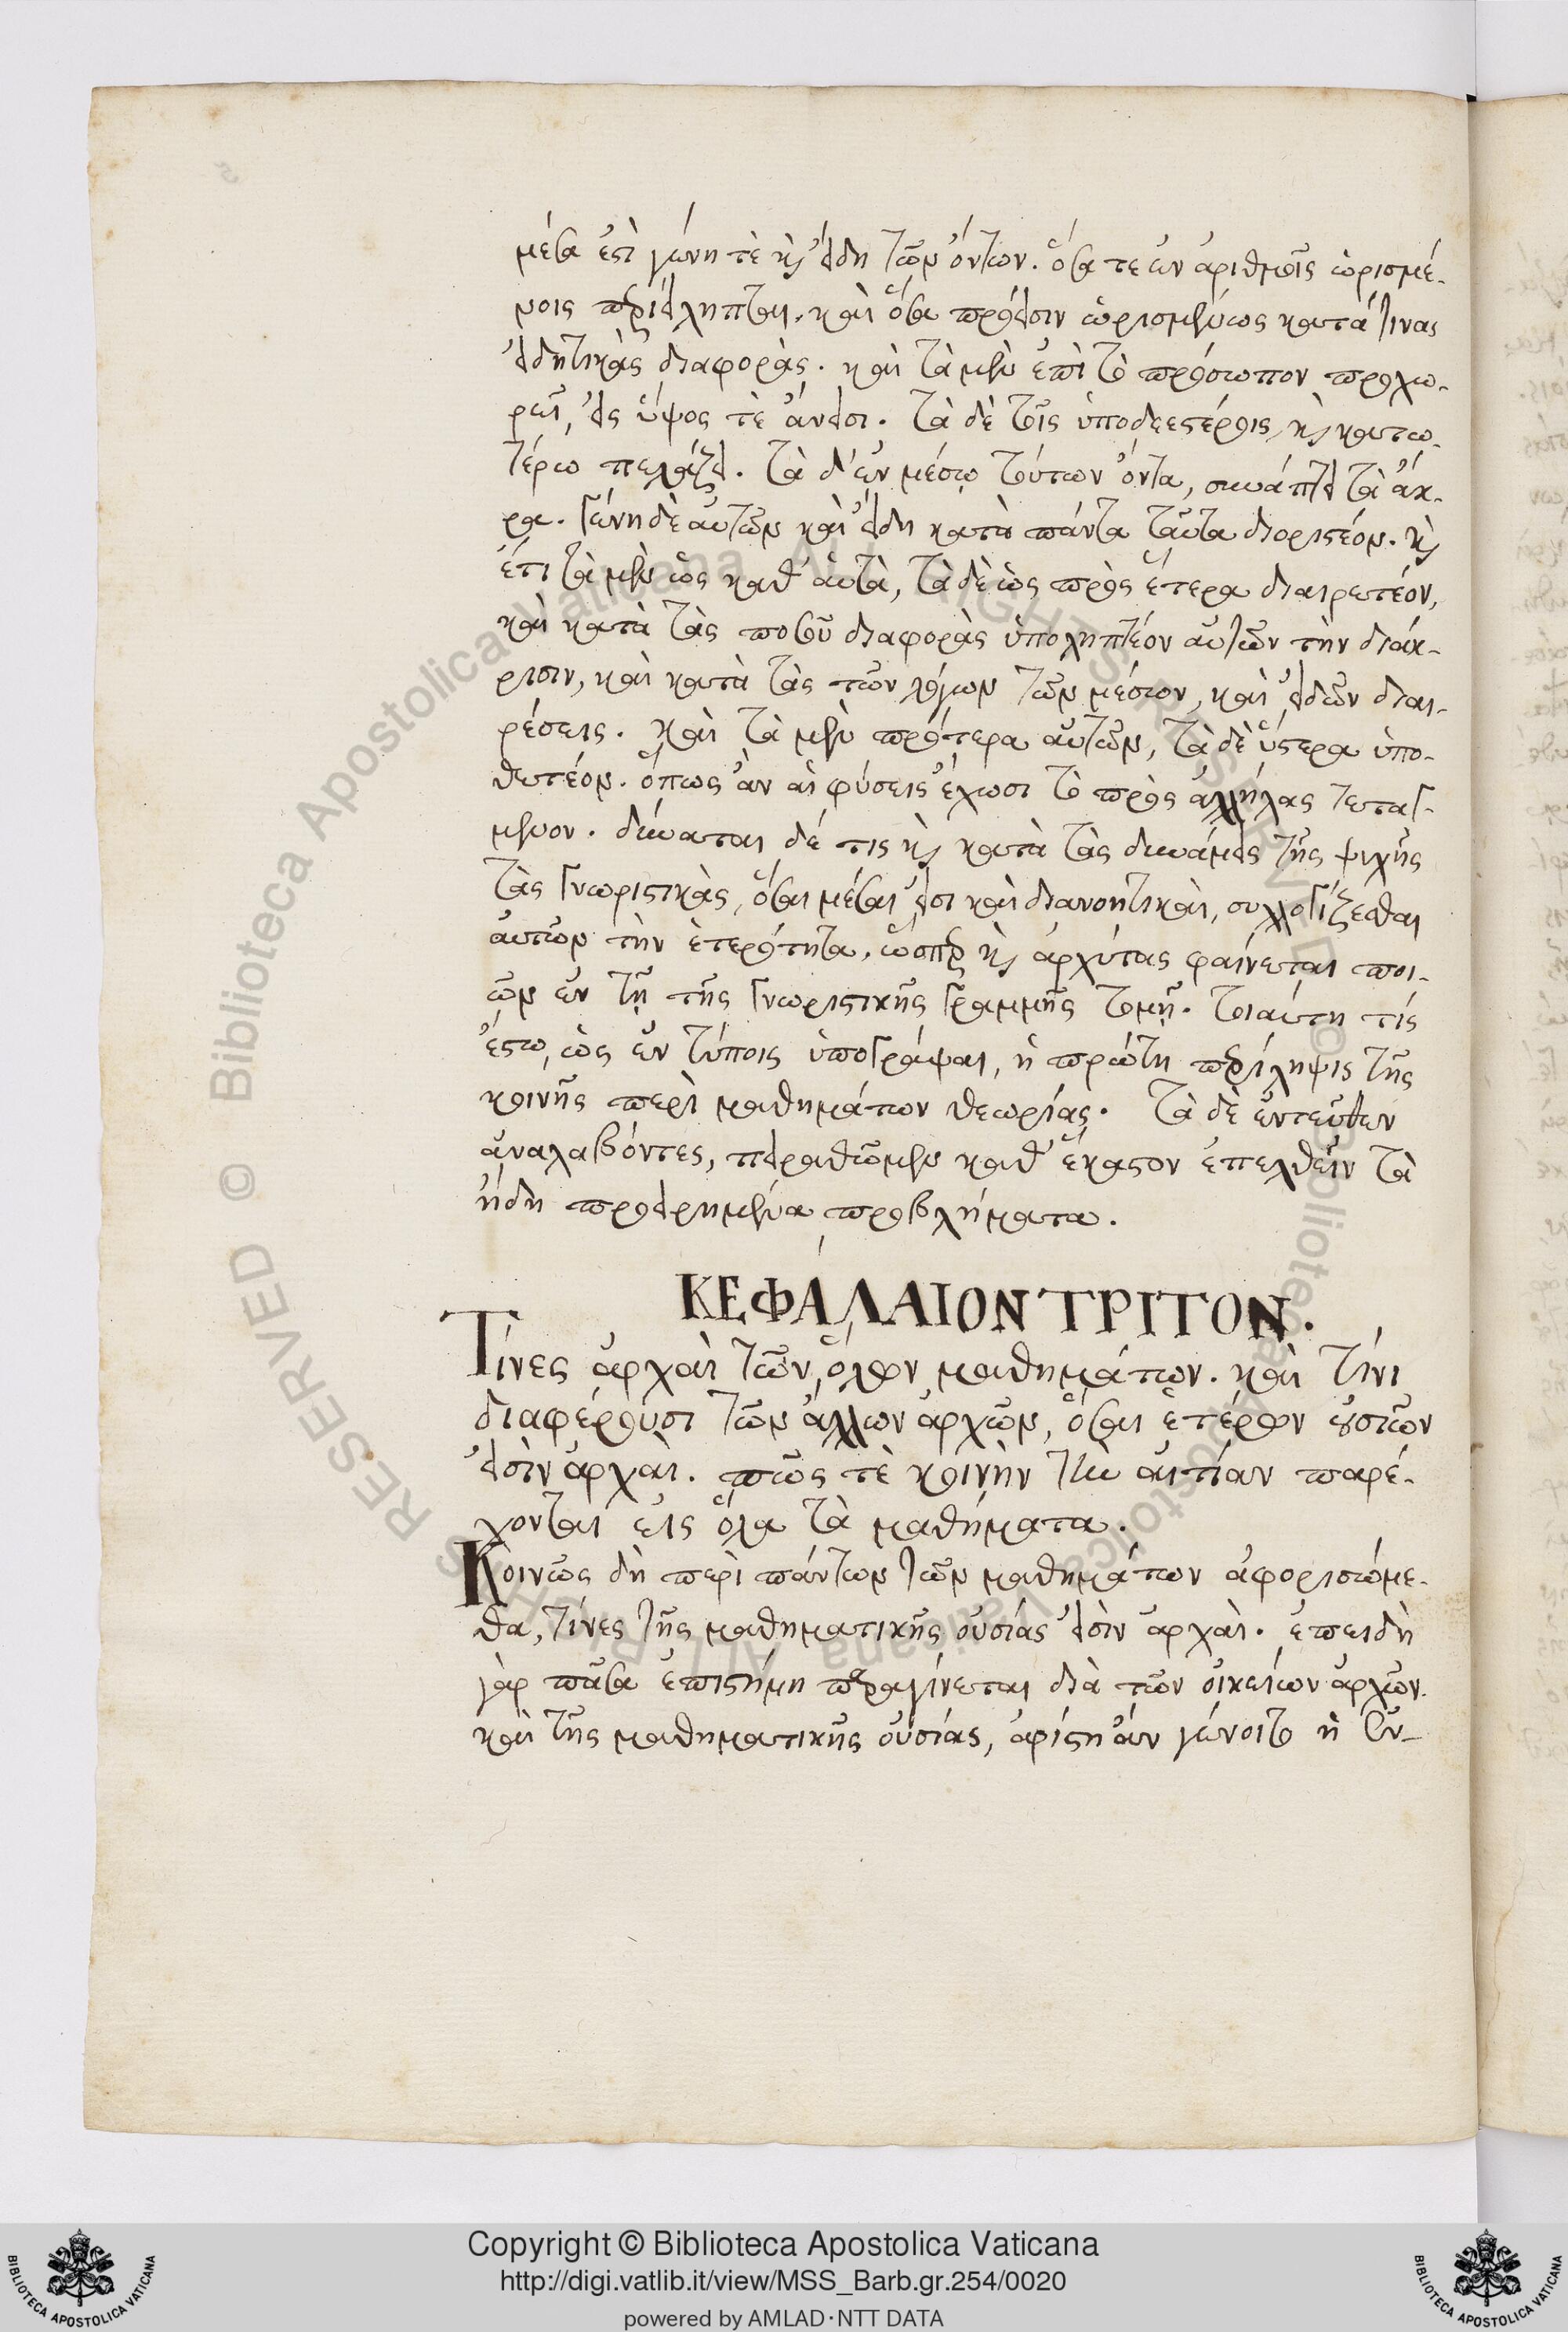 μέσα ἐστὶ γένη τὲ καὶ εἴδη τῶν ὄντων. ὅσα τε ἐν ἀριθμοῖς ὡρισμέ-
νοις περιείληπται, καὶ ὅσα πρόεισιν ὡρισμένως κατά τινας
εἰδητικὰς διαφοράς. καὶ τὰ μὲν ἐπὶ τὸ πρόσωπον προχω-
ρεῖ, εἰς ὕψος τὲ ἄνεισι. τὰ δὲ τοῖς ὑποδεεστέροις, καὶ κατω-
τέρω πελάζει. τὰ δ' ἐν μέσῳ τούτων ὄντα, συνάπτει τὰ ἄκ-
ρα. Γένη δὲ αὐτῶν καὶ εἴδη κατὰ πάντα ταῦτα διοριστέον. καὶ
ἔτι τὰ μὲν ὡς καθ' αὑτὰ, τὰ δὲ ὡς πρὸς ἕτερα διαιρετέον,
καὶ κατὰ τὰς ποσοῦ διαφορὰς ὑποληπτέον αὐτῶν τὴν διάκ-
ρισιν, καὶ κατὰ τὰς τῶν λόγων τῶν μέσων, καὶ εἰδῶν διαι-
ρέσεις. καὶ τὰ μὲν πρότερα αὐτῶν, τὰ δὲ ὕστερα ὑπο-
θετέον. ὅπως ἂν αἱ φύσεις ἔχωσι τὸ πρὸς ἀλλήλας τεταγ-
μένον. δύναται δέ τις καὶ κατὰ τὰς δυνάμεις τῆς ψυχῆς
τὰς γνωριστικὰς, ὅσαι μέσαι εἰσὶ καὶ διανοητικαὶ, συλλογίζεσθαι
αὐτῶν τὴν ἑτερότητα. ὥσπερ καὶ ἀρχύτας φαίνεται ποι-
ῶν ἐν τῇ τῆς γνωριστικῆς γραμμῆς τομῇ. τοιαύτη τίς
ἔστω, ὡς ἐν τύποις ὑπογράψαι, ἡ πρώτη περίληψις τῆς
κοινῆς περὶ μαθημάτων θεωρίας. τὰ δὲ ἐντεῦθεν
ἀναλαβόντες, πειραθῶμεν καθ' ἕκαστον ἐπελθεῖν τὰ
ἤδη προειρημένα προβλήματα.
ΚΕΦΆΛΑΙΟΝ ΤΡΙΤΟΝ.
Τίνες ἀρχαὶ τῶν ὅλων μαθημάτων. καὶ τίνι
διαφέρουσι τῶν ἄλλων ἀρχῶν, ὅσαι ἑτέρων οὐσιῶν
εἰσὶν ἀρχαί. πῶς τὲ κοινὴν τὴν αἰτίαν παρέ-
χονται εἰς ὅλα τὰ μαθήματα.
Κοινῶς δὴ περὶ πάντων τῶν μαθημάτων ἀφορισώμε-
θα, τίνες τῆς μαθηματικῆς οὐσίας εἰσὶν ἀρχαί. ἐπειδὴ
γὰρ πᾶσα ἐπιστήμη παραγίνεται διὰ τῶν οἰκείων ἀρχῶν.
καὶ τῆς μαθηματικῆς οὐσίας, ἀρίστη ἂν γένοιτο ἡ εὕ-
Copyright © Biblioteca Apostolica Vaticana
http://digi.vatlib.it/view/MSS_Barb.gr.254/0020
powered by AMLAD·NTT DATA